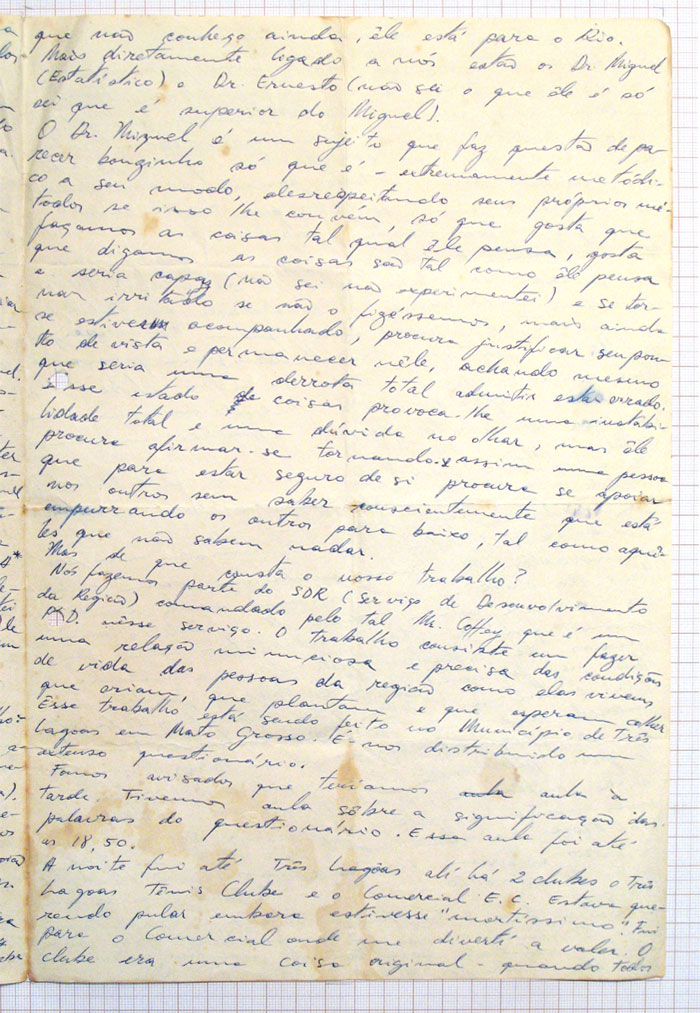 que não conheço ainda, êle está para o Rio.
Mais diretamente ligado a nós estão os Dr. Miguel
(Estatístico) e Dr. Ernesto (não sei o que êle é só
sei que e superior do Miguel).
O Dr. Miguel é um sujeito que faz questão de pa-
recer bonzinho só que é - extremamente metódi-
co a seu modo, desrespeitando seus próprios mé-
todos se isso lhe convém, só que gosta que
façamos as coisas tal qual êle pensa, gosta
que digamos as coisas são tal como êle pensa
e seria capaz (não sei não experimentei) e se tor-
nar irritado se não o fizéssemos, mais ainda
se estiver acompanhado, procura justificar seu pon-
to de vista e permanecer nêle, achando mesmo
que seria uma derrota total admitir estar errado.
esse estado de coisas provoca-lhe uma instabi-
lidade total e uma dúvida no olhar, mas êle
procura afirmar-se tornando-se assim uma pessoa
que para estar seguro de si procura se apoiar
nos outros sem saber conscientemente que está
empurrando os outros para baixo, tal como aquê-
les que não sabem nadar.
Mas de que consta o nosso trabalho?
Nós fazemos parte do SDR (Serviço de Desenvolvimento
da Região) comandado pelo tal Mr. Coffey que é um
P.D. nêsse serviço. O trabalho consiste em fazer
uma relação minuciosa e precisa das condições
de vida das pessoas da região como elas vivem
que criam, que plantam e que esperam colher
Esse trabalho está sendo feito no Município de Três
Lagoas em Mato Grosso. É-nos distribuido um
extenso questionário.
Fomos avisados que teríamos aula à
tarde. Tivemos aula sôbre a significação das
palavras do questionário. Essa aula foi até
as 18,50.
A noite fui até Três Lagôas ali há 2 clubes o Três
Lagoas Tênis Clube e o Comercial E.C. Estava que-
rendo pular embora estivesse "mortíssimo". Fui
para o Comercial onde me divertí a valer. O
clube era uma coisa original - quando todos